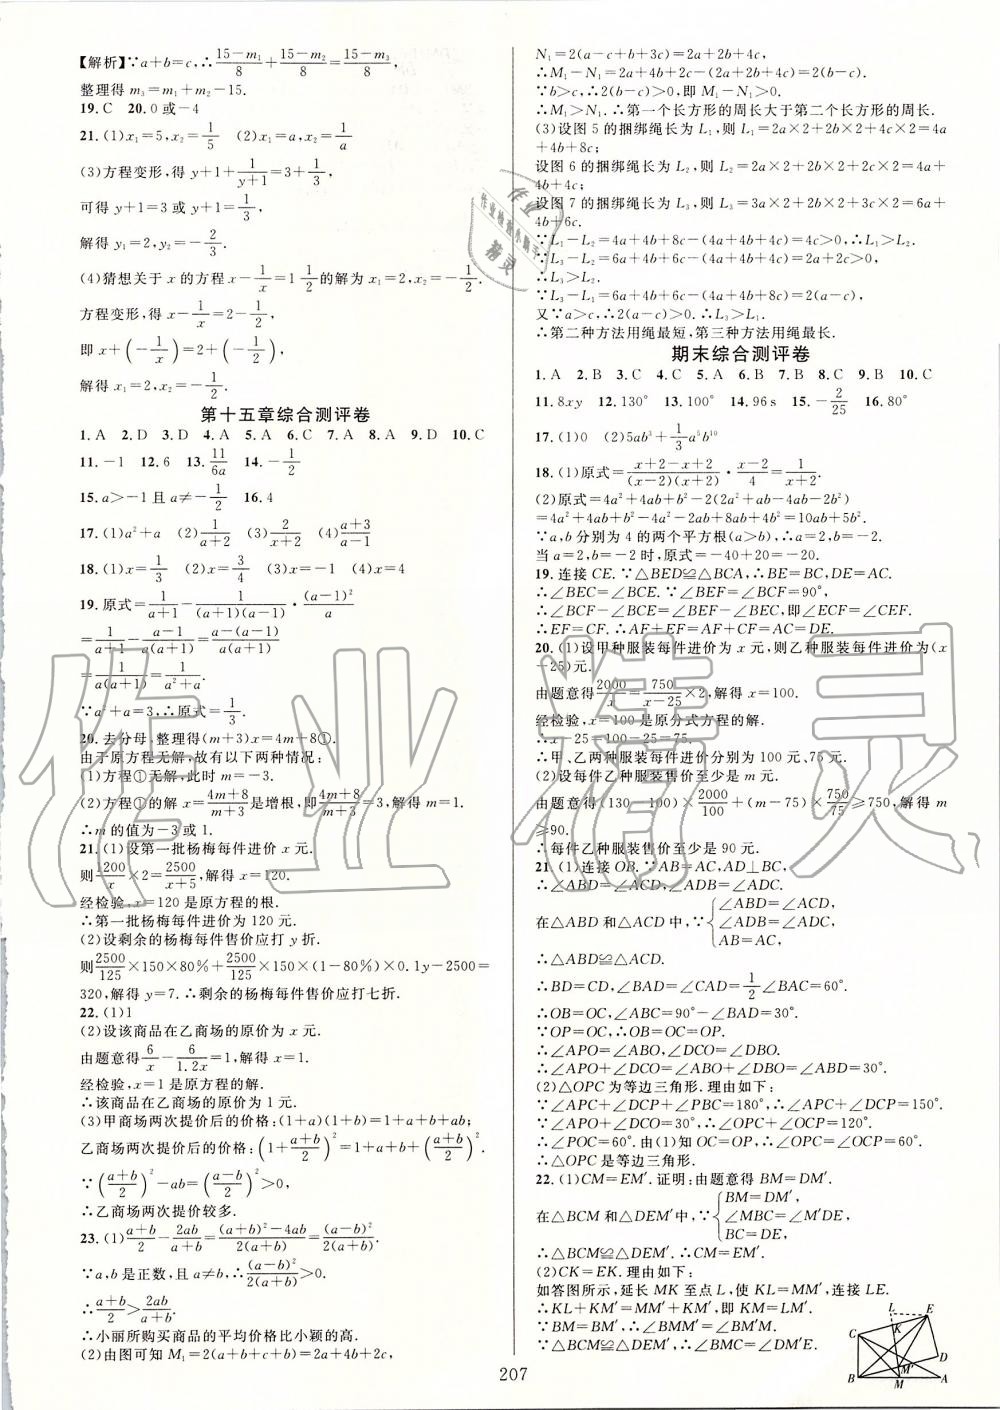 【解析】∵a+b=c,∴(15-m₁)/8+(15-m₂)/8=(15-m₃)/8,
整理得 m₃=m₁+m₂-15.
19. C  20. 0 或-4
21. (1)x₁=5,x₂=1/5  (2)x₁=a,x₂=1/a
(3)方程变形,得 y+1+1/(y+1)=3+1/3,
可得 y+1=3 或 y+1=1/3,
解得 y₁=2,y₂=-2/3.
(4)猜想关于 x 的方程 x-1/x=1 1/2 的解为 x₁=2,x₂=-1/2.
方程变形,得 x-1/x=2-1/2,
即 x+(-1/x)=2+(-1/2),
解得 x₁=2,x₂=-1/2.
第十五章综合测评卷
1. A  2. D  3. D  4. A  5. A  6. C  7. A  8. A  9. D  10. C
11. -1  12. 6  13. 11/6a  14. -1/2
15. a>-1 且 a≠-1/2  16. 4
17. (1)a²+a  (2)1/(a+2)  (3)2/(x+2)  (4)(a+3)/(a-1)
18. (1)x=1/3  (2)x=3/4  (3)x=-1  (4)x=4
19. 原式=1/(a+1)-1/((a+1)(a-1))·(a-1)²/a
=1/(a+1)-(a-1)/(a(a+1))=(a-(a-1))/(a(a+1))
=1/(a(a+1))=1/(a²+a).
∵a²+a=3,∴原式=1/3.
20. 去分母,整理得(m+3)x=4m+8①.
由于原方程无解,故有以下两种情况:
(1)方程①无解,此时 m=-3.
(2)方程①的解 x=(4m+8)/(m+3)是增根,即(4m+8)/(m+3)=3,解得 m=1.
∴m 的值为-3或1.
21. (1)设第一批杨梅每件进价 x 元.
则1200/x×2=2500/(x+5),解得 x=120.
经检验,x=120 是原方程的根.
∴第一批杨梅每件进价为 120 元.
(2)设剩余的杨梅每件售价应打 y 折.
则2500/125×150×80%+2500/125×150×(1-80%)×0.1y-2500=
320,解得 y=7. ∴剩余的杨梅每件售价应打七折.
22. (1)1
(2)设该商品在乙商场的原价为 x 元.
由题意得6/x-6/1.2x=1,解得 x=1.
经检验,x=1 是原方程的解.
∴该商品在乙商场的原价为 1 元.
(3)甲商场两次提价后的价格:(1+a)(1+b)=1+a+b+ab;
乙商场两次提价后的价格:(1+(a+b)/2)²=1+a+b+((a+b)/2)²
∵((a+b)/2)²-ab=((a-b)/2)²>0,
∴乙商场两次提价较多.
23. (1)(a+b)/2-2ab/(a+b)=((a+b)²-4ab)/(2(a+b))=(a-b)²/(2(a+b))
∵a,b 是正数,且 a≠b,∴(a-b)²/(2(a+b))>0.
∴(a+b)/2>2ab/(a+b).
∴小丽所购买商品的平均价格比小颖的高.
(2)由图可知 M₁=2(a+b+c+b)=2a+4b+2c,
N₁=2(a-c+b+3c)=2a+2b+4c,
∴M₁-N₁=2a+4b+2c-(2a+2b+4c)=2(b-c).
∵b>c,∴2(b-c)>0,即 M₁-N₁>0.
∴M₁>N₁. ∴第一个长方形的周长大于第二个长方形的周长.
(3)设图 5 的捆绑绳长为 L₁,则 L₁=2a×2+2b×2+4c×2=4a
+4b+8c;
设图 6 的捆绑绳长为 L₂,则 L₂=2a×2+2b×2+2c×2=4a+
4b+4c;
设图 7 的捆绑绳长为 L₃,则 L₃=3a×2+2b×2+3c×2=6a+
4b+6c.
∵L₁-L₂=4a+4b+8c-(4a+4b+4c)=4c>0,
∴L₁>L₂.
∵L₃-L₂=6a+4b+6c-(4a+4b+4c)=2a+2c>0,
∴L₃>L₂.
∵L₃-L₁=6a+4b+6c-(4a+4b+8c)=2(a-c),
又∵a>c,∴2(a-c)>0. ∴L₃>L₁.
∴第二种方法用绳最短,第三种方法用绳最长.
期末综合测评卷
1. A  2. B  3. C  4. C  5. A  6. B  7. B  8. C  9. B  10. C
11. 8xy  12. 130°  13. 100°  14. 96 s  15. -2/25  16. 80°
17. (1)0  (2)5ab³+1/3a⁵b¹⁰
18. (1)原式=(x+2-x+2)/((x-2)(x+2))·(x-2)/4=1/(x+2).
(2)原式=4a²+4ab+b²-2(2a²+ab-4ab-2b²)
=4a²+4ab+b²-4a²-2ab+8ab+4b²=10ab+5b².
∵a,b 分别为 4 的两个平方根(a>b),∴a=2,b=-2.
当 a=2,b=-2 时,原式=-40+20=-20.
19. 连接 CE. ∵△BED≌△BCA,∴BE=BC,DE=AC.
∴∠BEC=∠BCE. ∵∠BEF=∠BCF=90°,
∴∠BCF-∠BCE=∠BEF-∠BEC,即∠ECF=∠CEF.
∴EF=CF. ∴AF+EF=AF+CF=AC=DE.
20. (1)设甲种服装每件进价为 x 元,则乙种服装每件进价为(x
-25)元.
由题意得2000/x=750/(x-25)×2,解得 x=100.
经检验,x=100 是原分式方程的解.
∴x-25=100-25=75.
∴甲、乙两种服装每件进价分别为 100 元、75 元.
(2)设每件乙种服装售价至少是 m 元.
由题意得(130-100)×2000/100+(m-75)×750/75≥750,解得 m
≥90.
∴每件乙种服装售价至少是 90 元.
21. (1)连接 OB. ∵AB=AC,AD⊥BC,
∴∠ABD=∠ACD,∠ADB=∠ADC.
在△ABD 和△ACD 中,∵{∠ABD=∠ACD,
∠ADB=∠ADC,
AB=AC,
∴△ABD≌△ACD.
∴BD=CD,∠BAD=∠CAD=1/2∠BAC=60°.
∴OB=OC,∠ABC=90°-∠BAD=30°.
∵OP=OC,∴OB=OC=OP.
∴∠APO=∠ABO,∠DCO=∠DBO.
∴∠APO+∠DCO=∠ABO+∠DBO=∠ABD=30°.
(2)△OPC 为等边三角形. 理由如下:
∵∠APC+∠DCP+∠PBC=180°,∴∠APC+∠DCP=150°.
∵∠APO+∠DCO=30°,∴∠OPC+∠OCP=120°.
∴∠POC=60°. 由(1)知∠OCP=∠OPC,∴∠OPC=∠OCP=60°.
∴△OPC 是等边三角形.
22. (1)CM=EM′. 证明:由题意得 BM=DM′.
在△BCM 和△DEM′中,∵{BM=DM′,
∠MBC=∠M′DE,
BC=DE,
∴△BCM≌△DEM′. ∴CM=EM′.
(2)CK=EK. 理由如下:
如答图所示,延长 MK 至点 L,使 KL=MM′,连接 LE.
∴KL+KM′=MM′+KM′,即 KM=LM′.
∵BM=BM′,∴∠BMM′=∠BM′M.
∵△BCM≌△DEM′,∴∠BMC=∠EM′D.
L E K C D M′ B M A
207
作业精灵